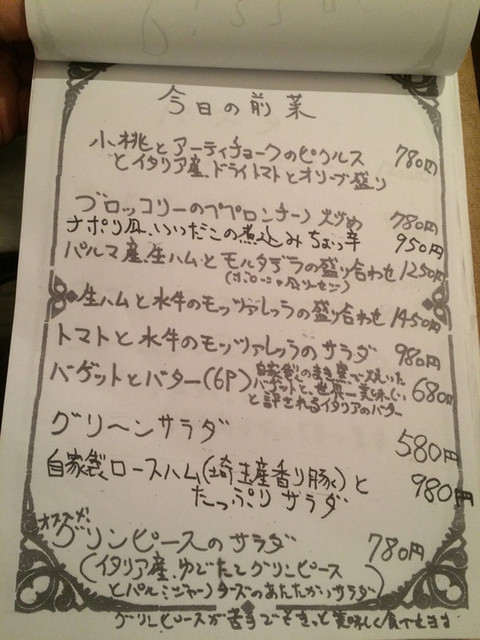 今日の前菜
小桃とアーティチョークのピクルス
とイタリア産ドライトマトとオリーブ盛り 780円
ブロッコリーのペペロンチーノ炒め 780円
ナポリ風、いいだこの煮込み 950円
パルマ産生ハムとモルタデラの盛り合わせ 1250円
(ボローニャ風ソーセージ)
生ハムと水牛のモッツァレッラの盛り合わせ 1450円
トマトと水牛のモッツァレッラのサラダ 980円
バゲットとバター(6P) 自家製のまき窯で焼いた
バゲットと、世界一美味しい 680円
と評されるイタリアのバター
グリーンサラダ 580円
自家製ロースハム(埼玉産香り豚)と 980円
たっぷりサラダ
オススメ!
グリンピースのサラダ 780円
(イタリア産、ゆでたてグリンピース
とパルミジャーノチーズのあたたかいサラダ)
グリーンピースが苦手でもきっと美味しく食べれます